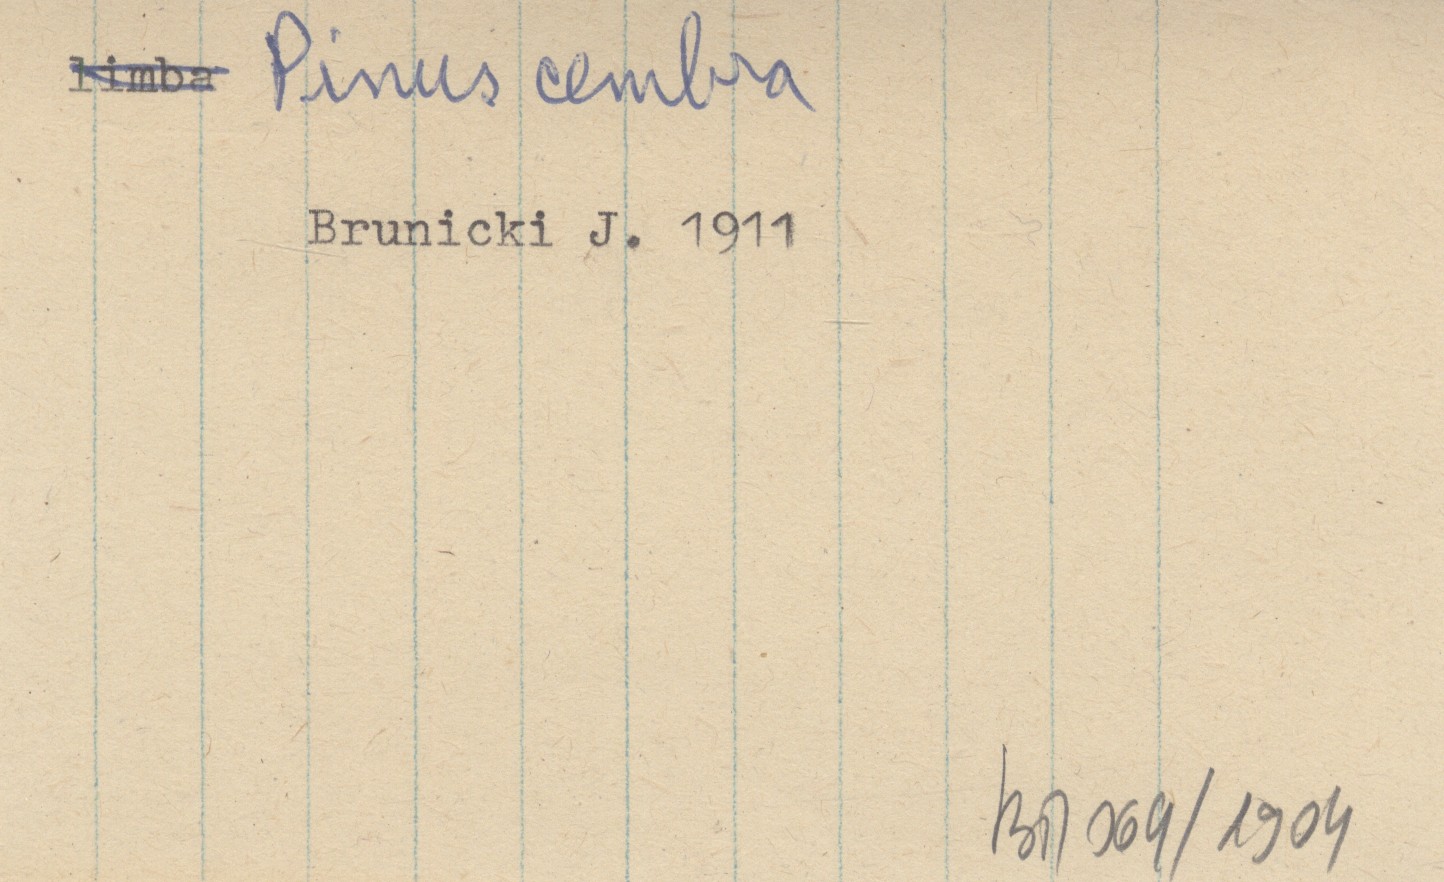 limba Pinus cembra
Brunicki J. 1911
/1904